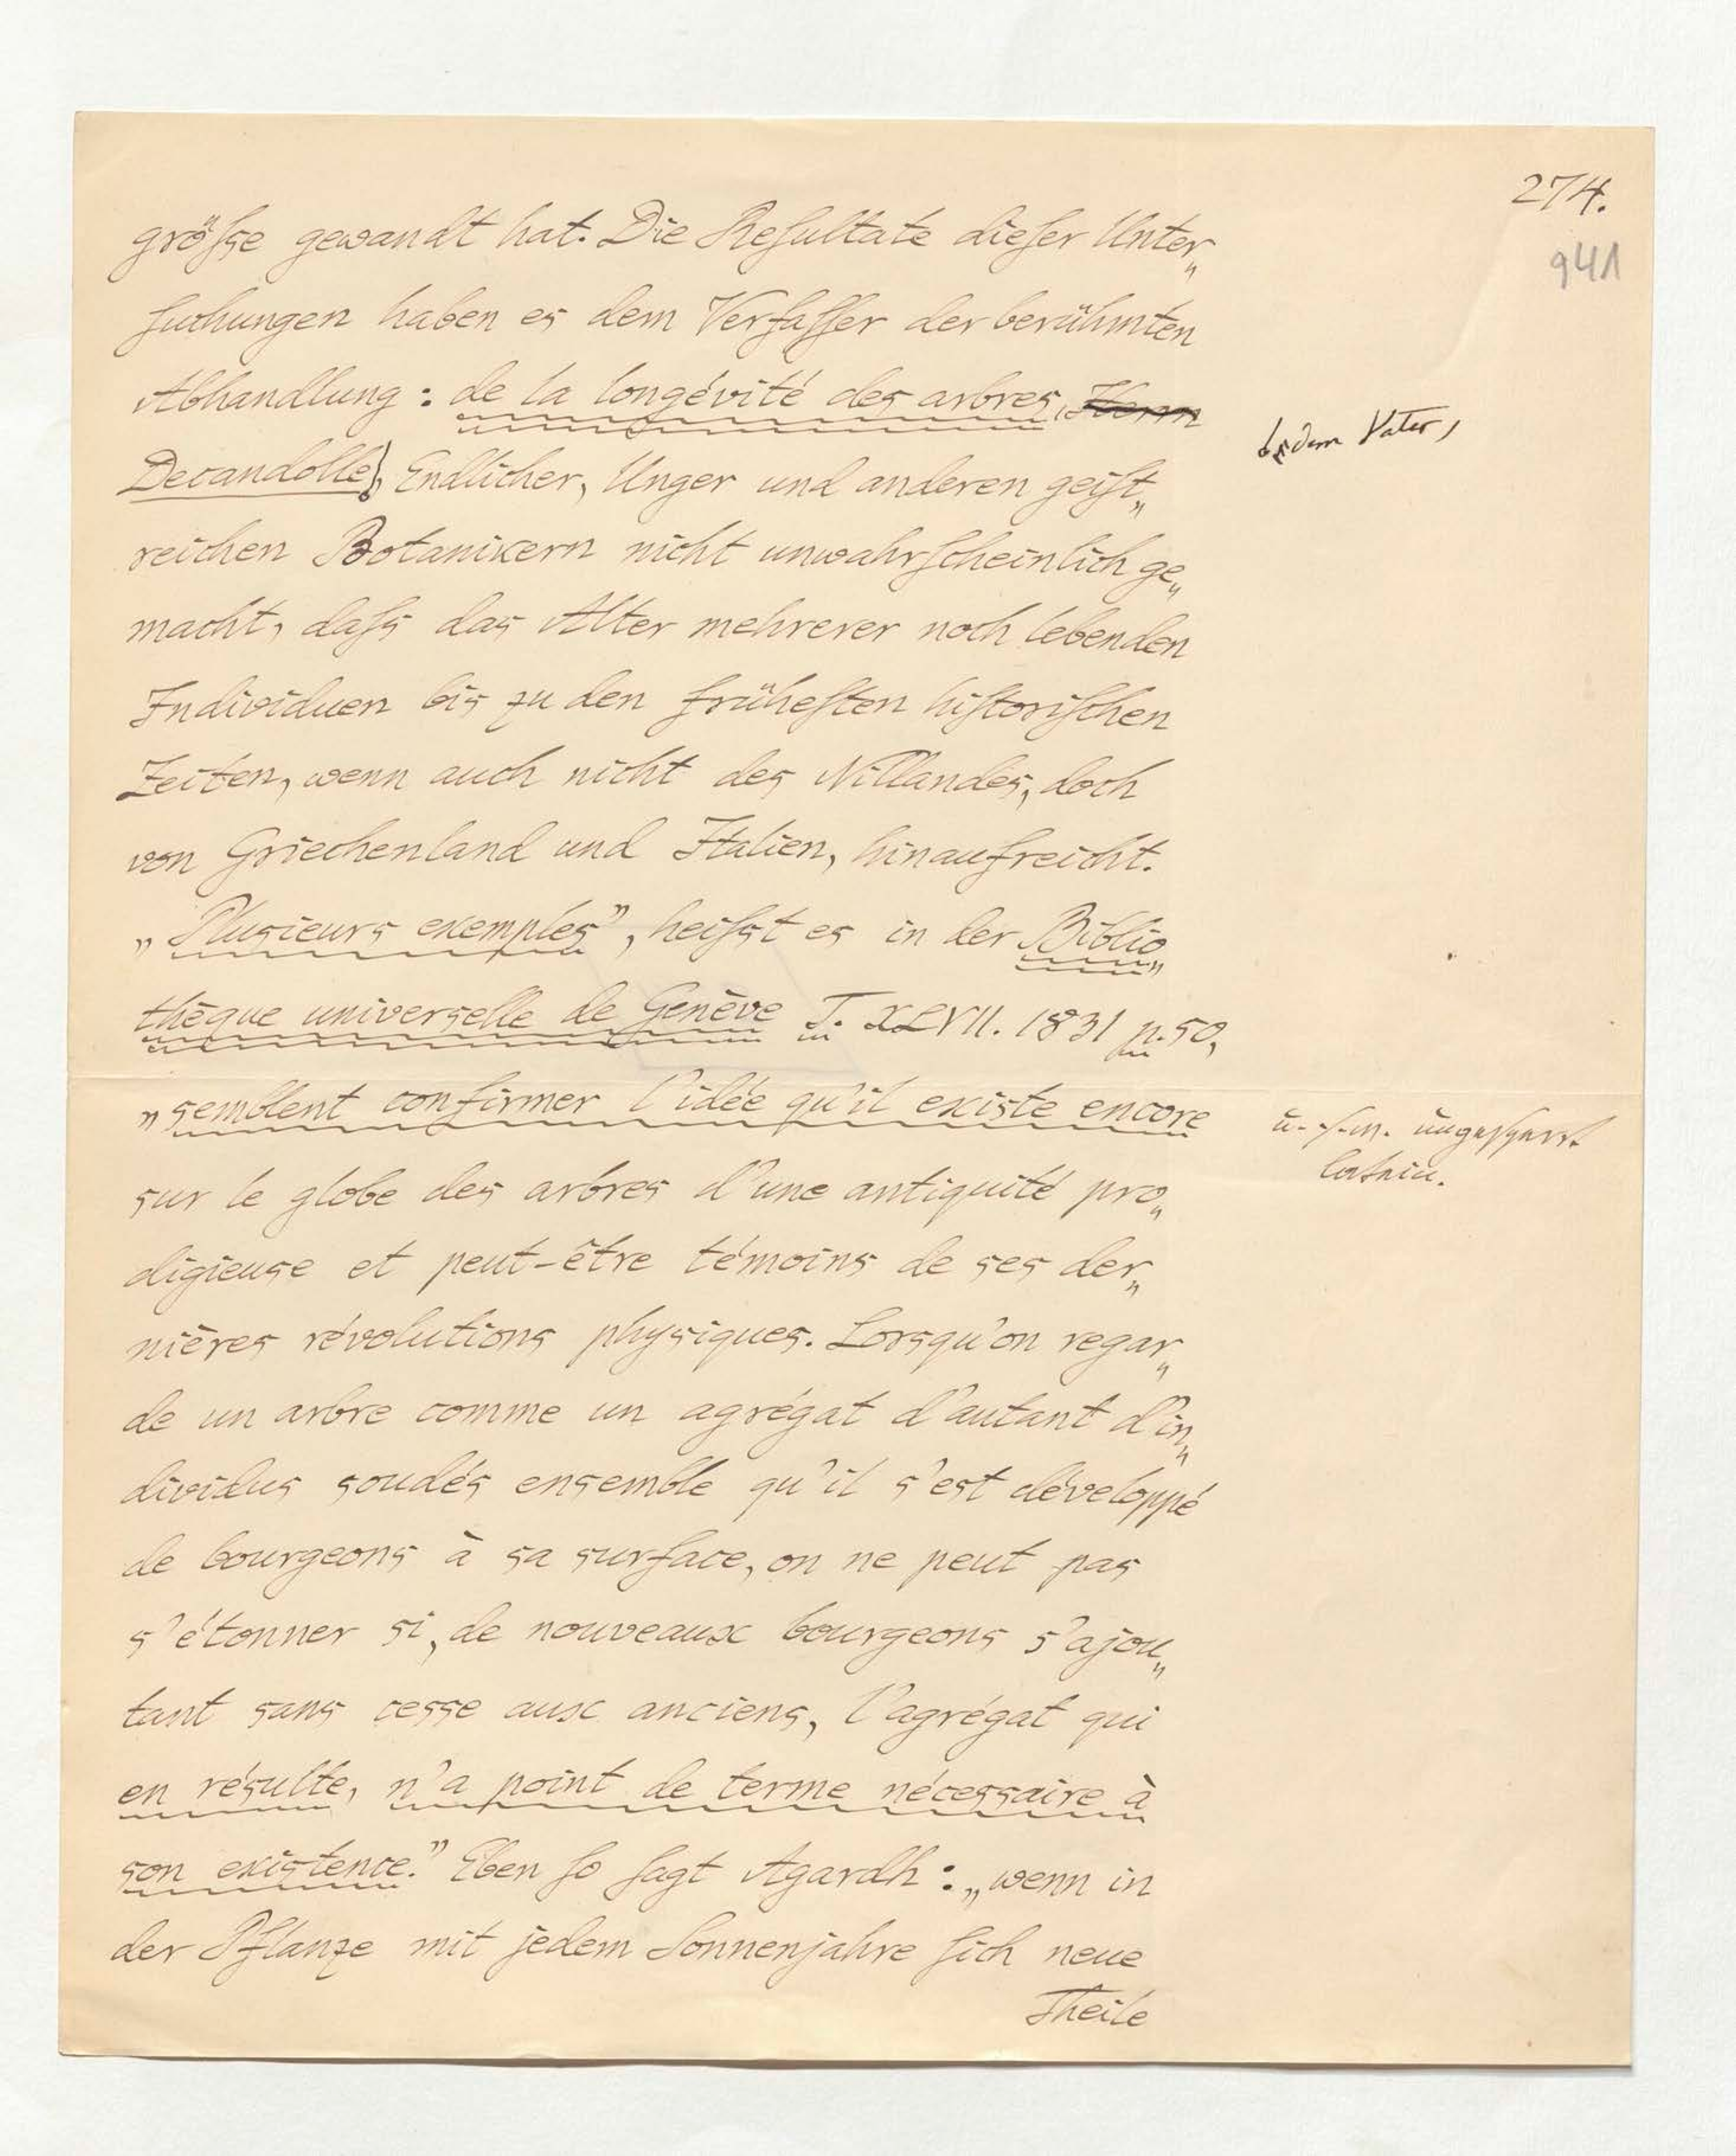 274.
941
größe gewandt hat. Die Reſultate dieſer Unter„
ſuchungen haben es dem Verfaſſer der berühmten
Abhandlung: de la longévité des arbres, Herrn
dem Vater,
Decandolle, Endlicher, Unger und anderen geiſt„
reichen Botanikern nicht unwahrſcheinlich ge„
macht, daſs das Alter mehrerer noch lebenden
Individuen bis zu den früheſten hiſtoriſchen
Zeiten, wenn auch nicht des Nillandes, doch
von Griechenland und Italien, hinaufreicht.
„Plusieurs exemples”, heiſst es in der Biblio„
thèque universelle de Genève T. XLVII. 1831 p. 50,
„semblent confirmer l'idée qu'il existe encore
u. ſ. w. ungeſperrt
latein.
sur le globe des arbres d'une antiquité pro„
digieuse et peut-être témoins de ses der„
nières révolutions physiques. Lorsqu'on regar„
de un arbre comme un agrégat d'autant d'in„
dividus soudés ensemble qu'il s'est développé
de bourgeons à sa surface, on ne peut pas
s'étonner si, de nouveaux bourgeons s'ajou„
tant sans cesse aux anciens, l'agrégat qui
en résulte, n'a point de terme nécessaire à
son existence.” Eben ſo ſagt Agardh: „wenn in
der Pflanze mit jedem Sonnenjahre ſich neue
Theile